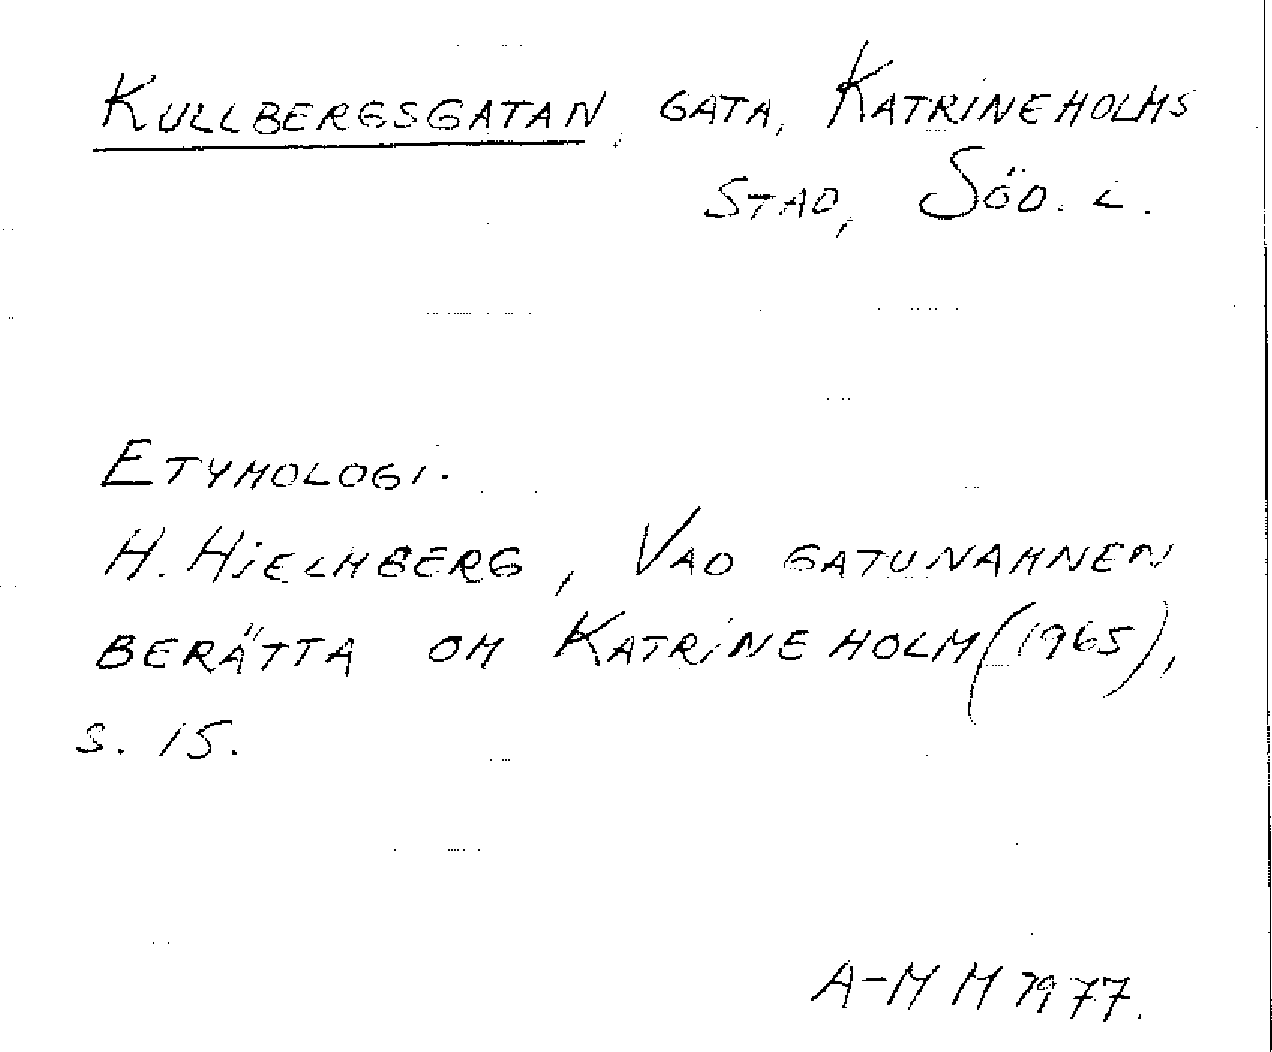 KULLBERGSGATAN, GATA, KATRINEHOLMS
STAD, SÖD. L.
ETYMOLOGI.
H. HJELMBERG, VAD GATUNAMNEN
BERÄTTA OM KATRINEHOLM (1965),
S. 15.
A-M M 1977.